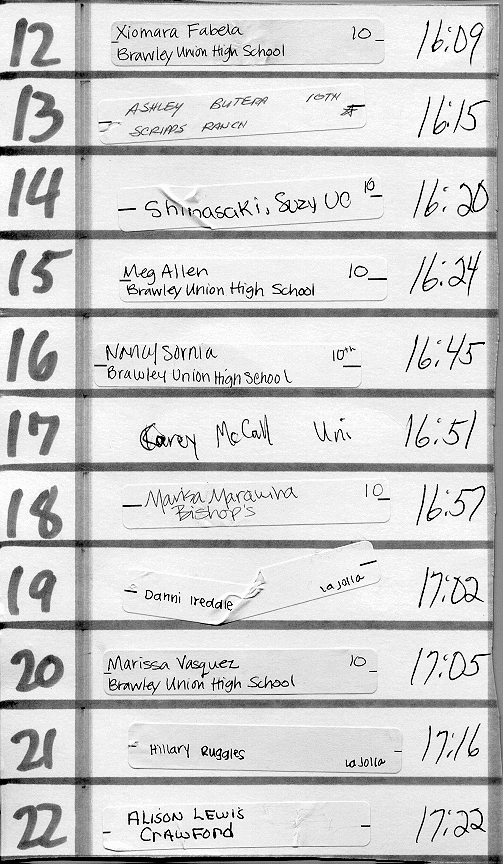 12 Xiomara Fabela 10 16:09
Brawley Union High School
13 ASHLEY BUTERA 10TH 16:15
SCRIPPS RANCH
14 Shinasaki, Suzy UC 10 16:20
15 Meg Allen 10 16:24
Brawley Union High School
16 Nancy Sornia 10th 16:45
Brawley Union High School
17 Carey McCall Uni 16:51
18 Marisa 10 16:57
Bishop's
19 Danni Iredale La Jolla 17:02
20 Marissa Vasquez 10 17:05
Brawley Union High School
21 Hillary Ruggles La Jolla 17:16
22 ALISON LEWIS 17:22
CRAWFORD